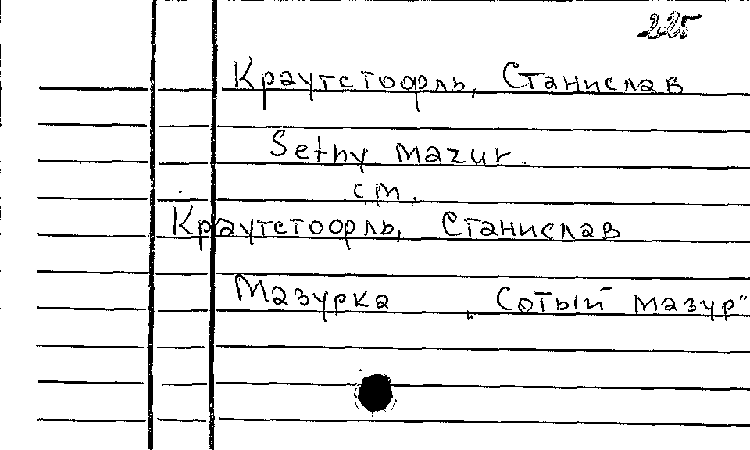 225
Краутстофль, Станислав
Setny mazur.
см.
Краутстофль, Станислав
Мазурка „Сотый мазур"